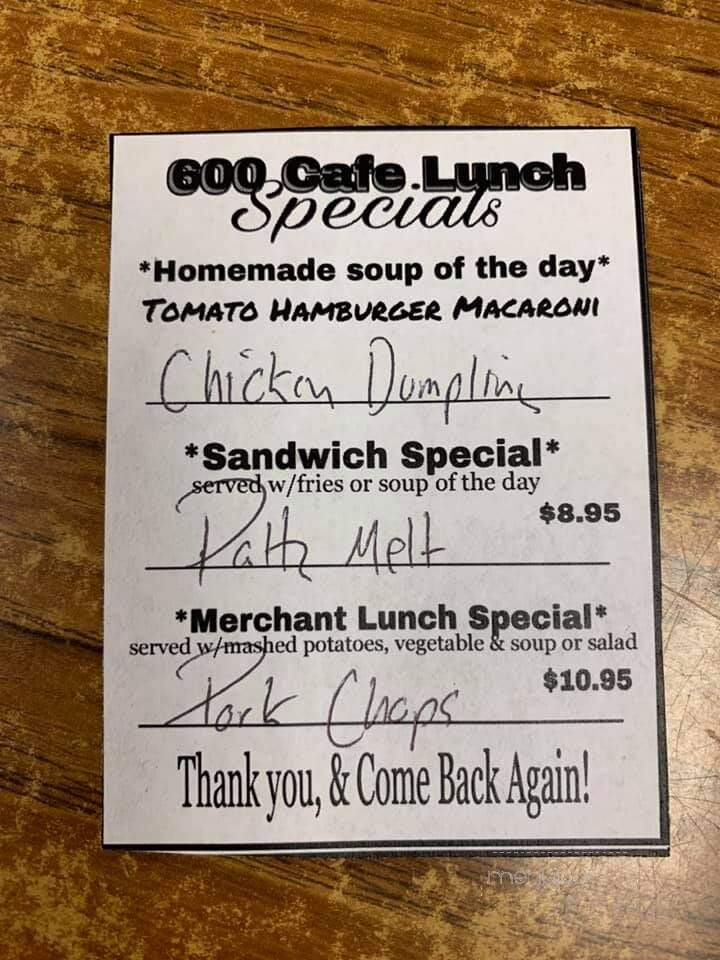 600 Cafe Lunch
Specials
*Homemade soup of the day*
TOMATO HAMBURGER MACARONI
Chicken Dumpling
*Sandwich Special*
served w/fries or soup of the day
$8.95
Patty Melt
*Merchant Lunch Special*
served w/mashed potatoes, vegetable & soup or salad
$10.95
Pork Chops
Thank you, & Come Back Again!